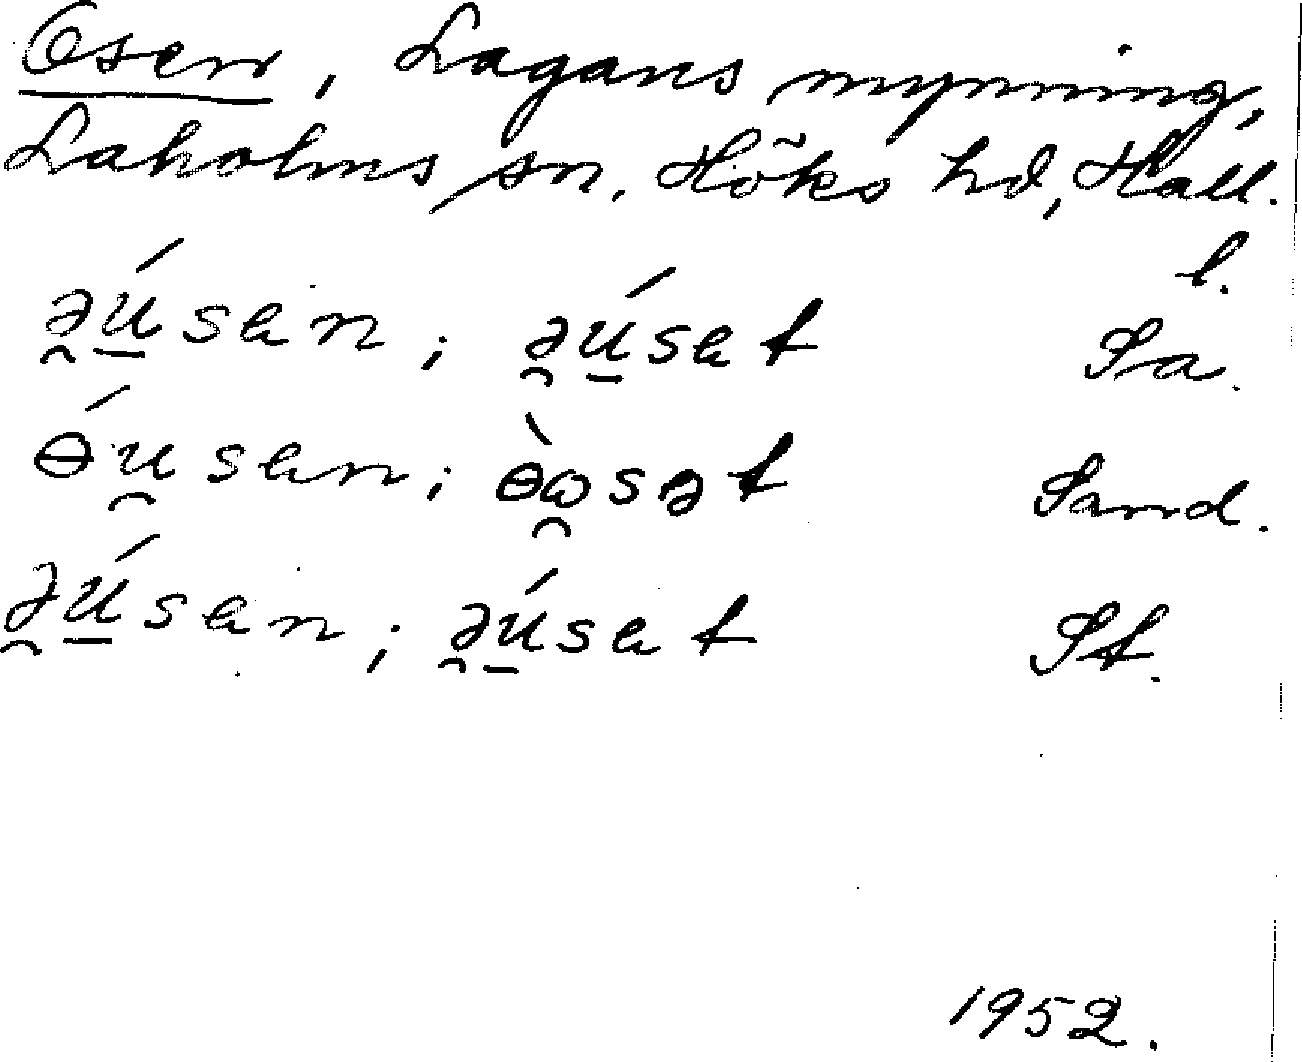 Osen, Lagans mynning,
Laholms sn, Höks hd, Hall.
l.
ə̯ú̱sen; ə̯ú̱set Sa.
ɵ́u̯sen; ɵ̀ω̯sət Sand.
ə̯ú̱sen; ə̯ú̱set St.
1952.